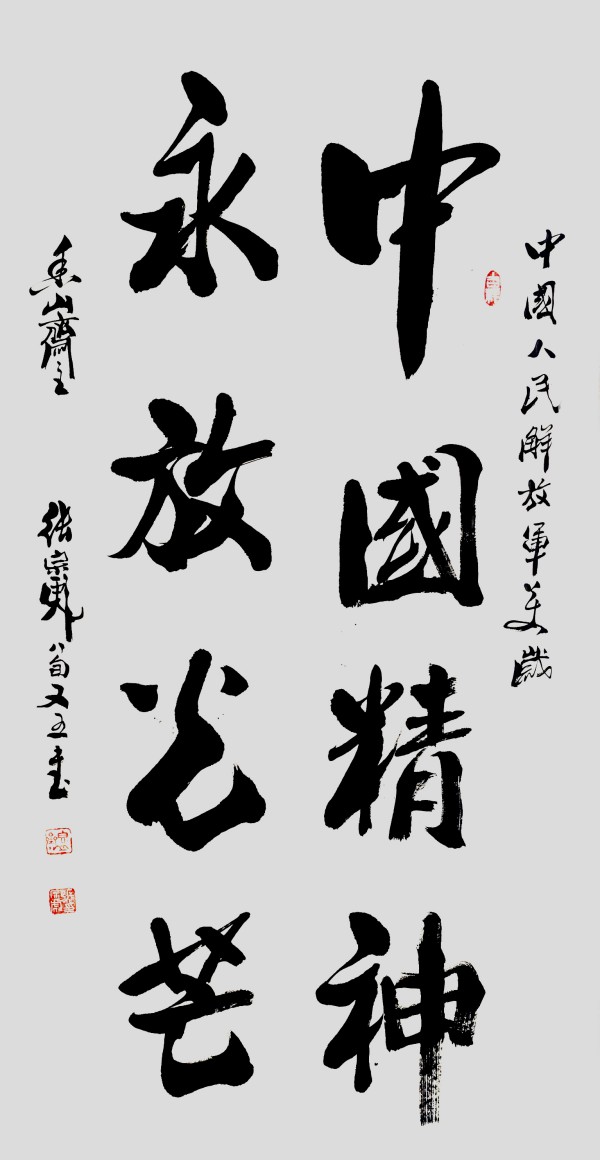 中國人民解放軍萬歲
中國精神
永放光芒
山齋主 張宗 八旬又五書